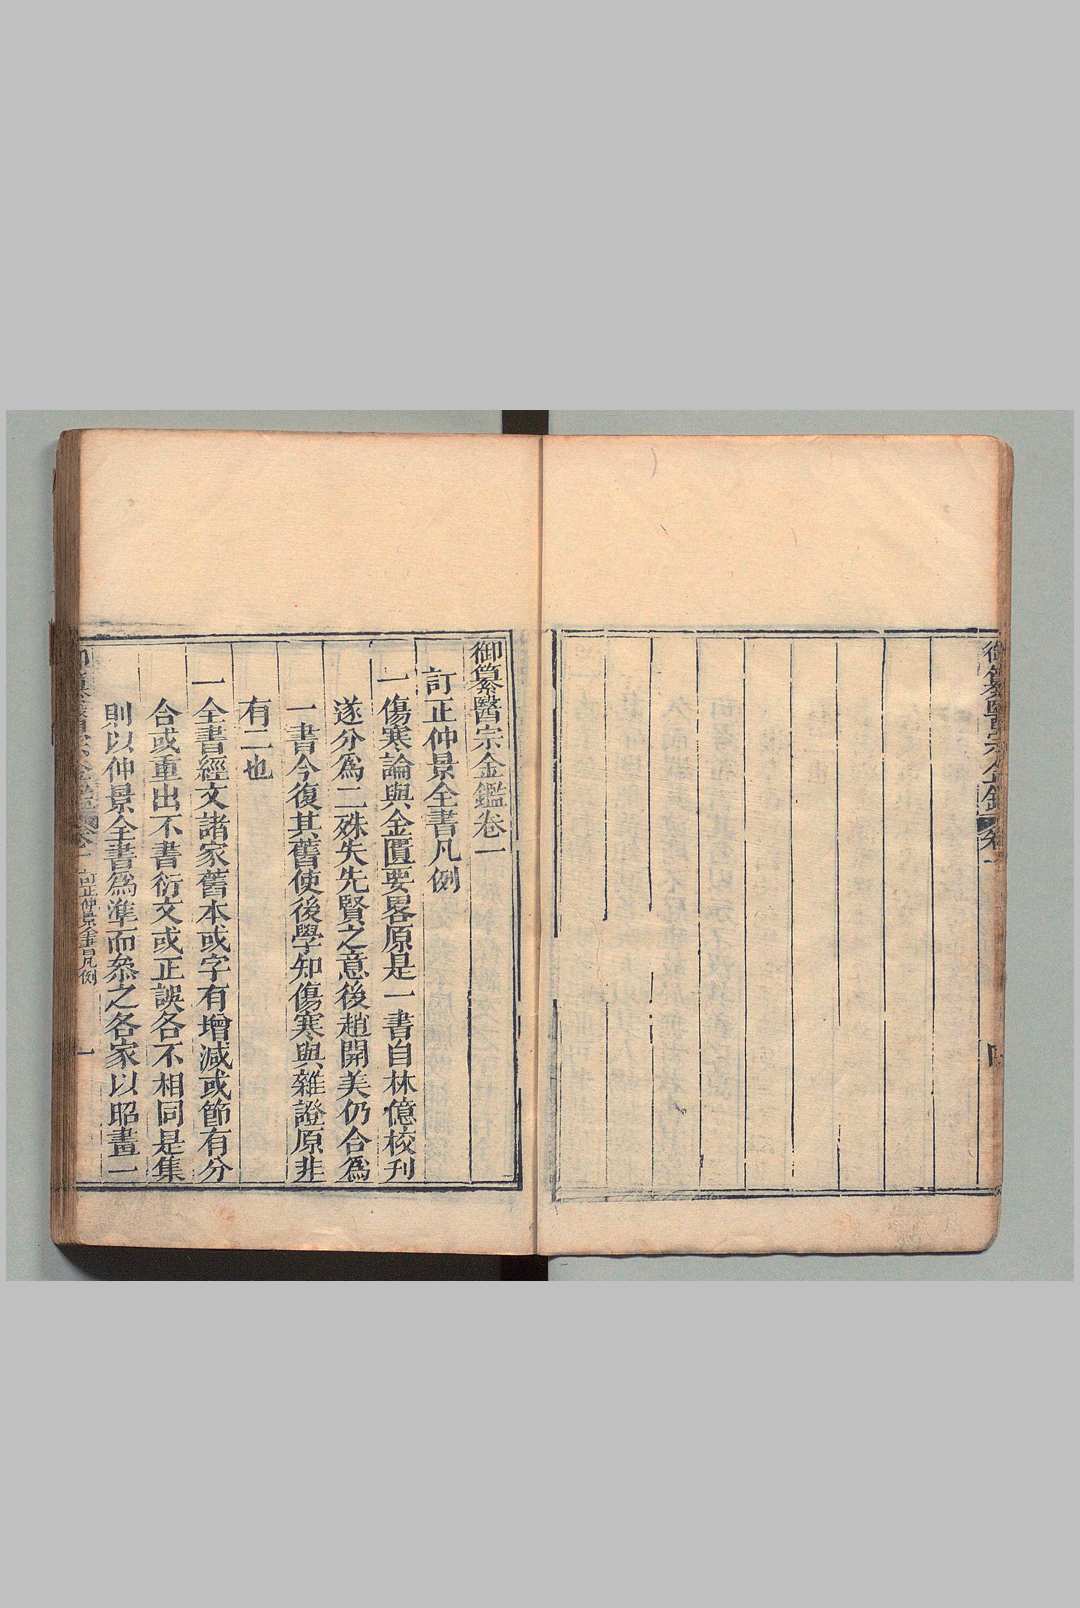 御纂醫宗金鑑卷一
訂正仲景全書凡例
一傷寒論與金匱要畧原是一書自林億校刊
遂分爲二殊失先賢之意後趙開美仍合爲
一書今復其舊使後學知傷寒與雜證原非
有二也
一全書經文諸家舊本或字有增減或節有分
合或重出不書衍文或正誤各不相同是集
則以仲景全書爲準而叅之各家以昭畫一
訂正仲景全書凡例
一